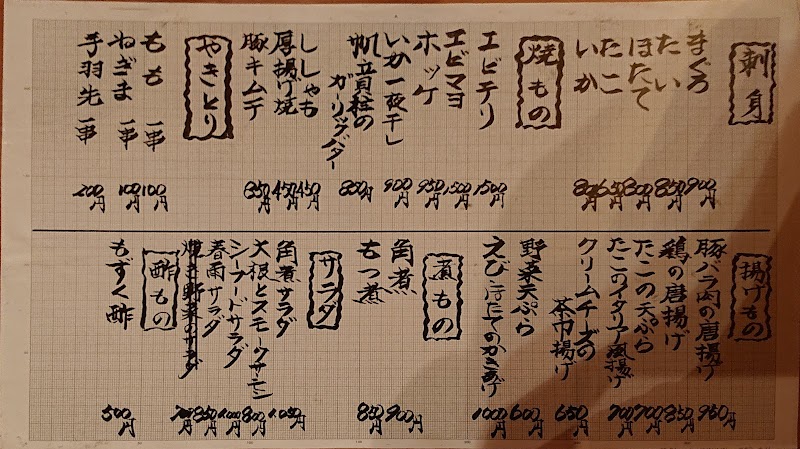 刺身
まぐろ 900円
たい 850円
ほたて 800円
たこ 650円
いか 800円
焼もの
エビチリ 1500円
エビマヨ 1500円
ホッケ 950円
いか一夜干し 900円
帆立貝柱の
ガーリックバター 850円
ししゃも 450円
厚揚げ焼 450円
豚キムチ 850円
やきとり
もも 一串 100円
ねぎま 一串 100円
手羽先 一串 200円
揚げもの
豚バラ肉の唐揚げ 950円
鶏の唐揚げ 850円
たこの天ぷら 700円
たこのイタリア風揚げ 700円
クリームチーズの
茶巾揚げ 650円
野菜天ぷら 600円
えびとほたてのかきあげ 1000円
煮もの
角煮 900円
もつ煮 850円
サラダ
角煮サラダ 1,050円
大根とスモークサーモン 800円
シーフードサラダ 1,000円
春雨サラダ 850円
焼き野菜のサラダ 700円
酢もの
もずく酢 500円